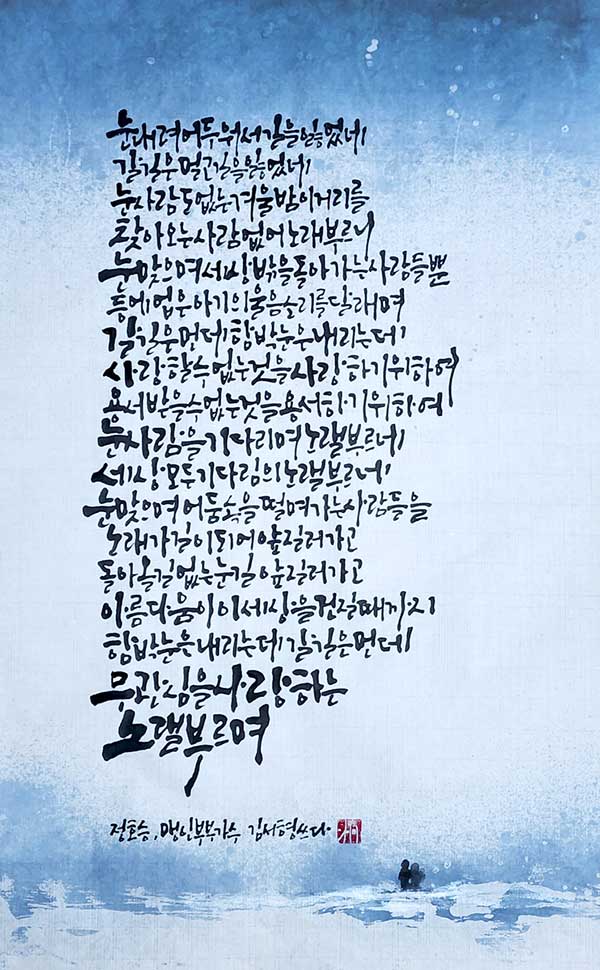 눈내려 어두워서 길을 잃었네
갈길은 멀고 길을 잃었네
눈사람도 없는 겨울밤 이 거리를
찾아오는 사람 없어 노래 부르니
눈맞으며 세상 밖을 돌아가는 사람들뿐
등에 업은 아기의 울음소리를 달래며
갈길은 먼데 함박눈은 내리는데
사랑할 수 없는 것을 사랑하기 위하여
용서받을 수 없는 것을 용서하기 위하여
눈사람을 기다리며 노랠 부르네
세상 모두 기다림의 노랠 부르네
눈맞으며 어둠속을 떨며 가는 사람들을
노래가 길이 되어 앞질러가고
돌아올 길 없는 눈길 앞질러가고
아름다움이 이 세상을 건질 때까지
함박눈은 내리는데 갈길은 먼데
무관심을 사랑하는
노랠 부르며
정호승, 맹인부부가수 김서형 쓰다.